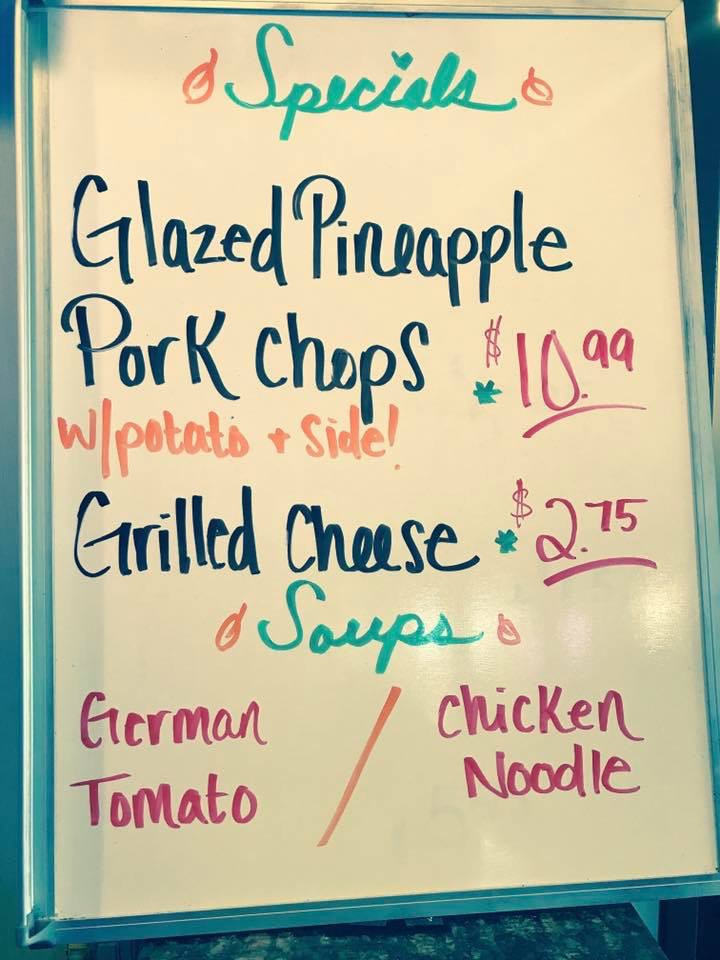 Specials
Glazed Pineapple
Pork Chops $10.99
w/potato + Side!
Grilled Cheese $2.75
Soups
German / Chicken
Tomato Noodle